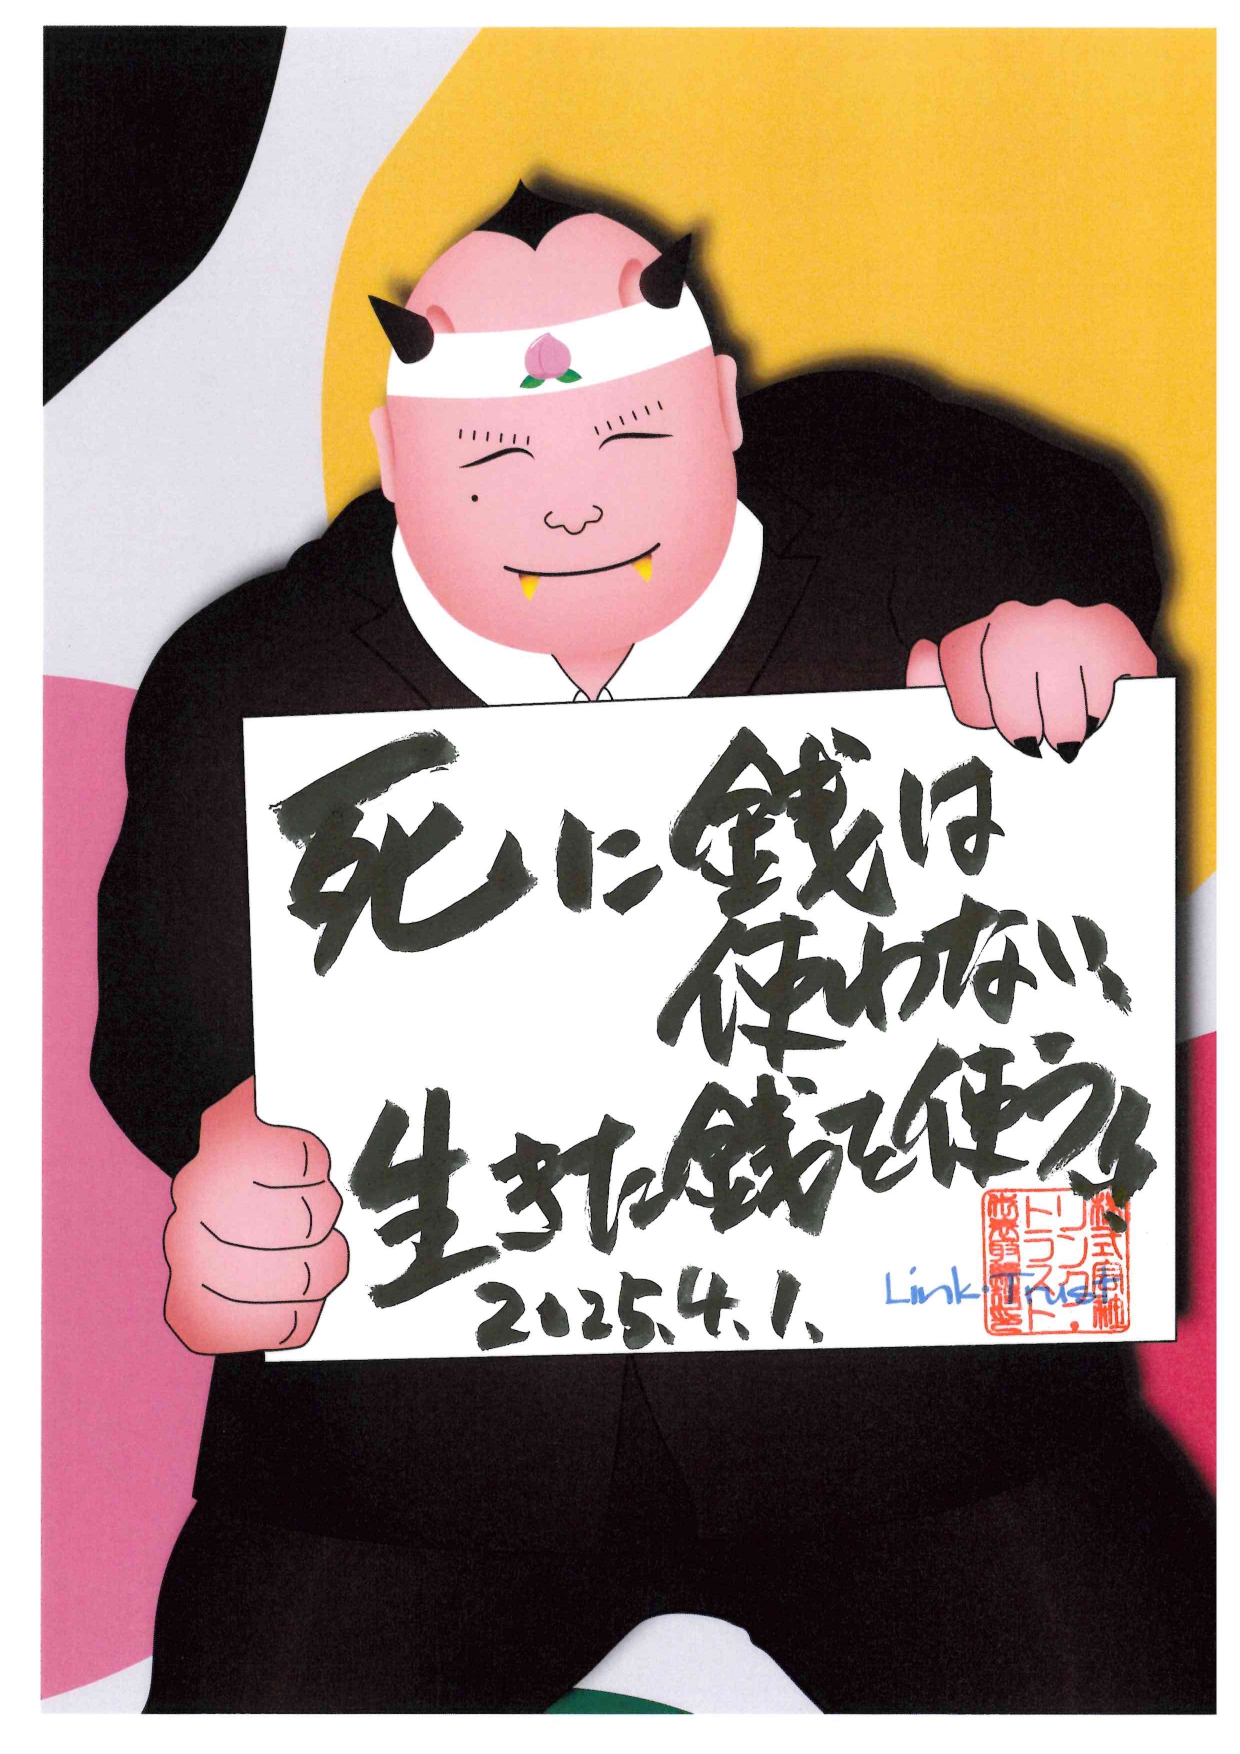 死に銭は
使わない、
生きた銭を使う!!
2025.4.1.
Link・Trust
株式会社
リンク・
トラスト